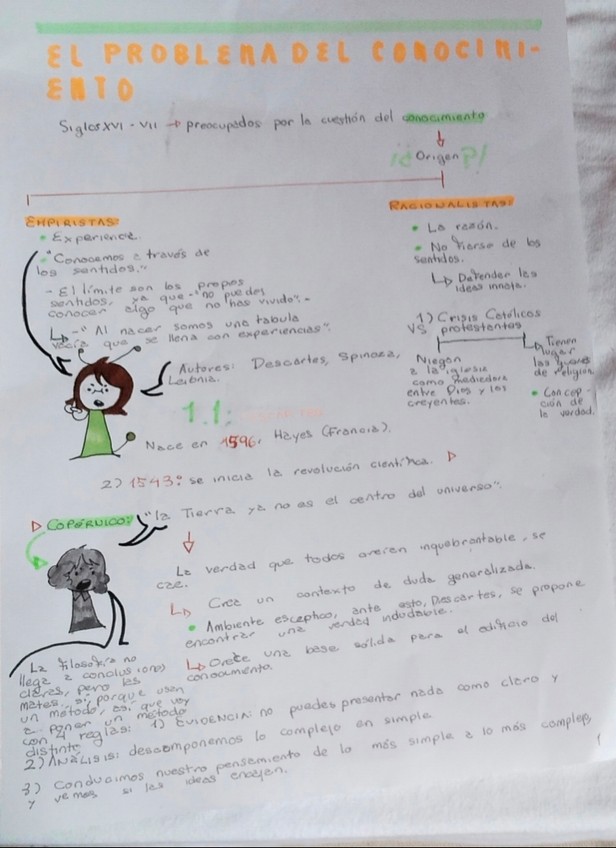 EL PROBLEMA DEL CONOCIMI-
ENTO
Siglos XVI - VII → preocupados por la cuestión del conocimiento
¿Origen?
EMPIRISTAS:
• Experiencia.
"Conocemos a través de
los sentidos."
- El límite son los propios
sentidos, ya que "no puedes
conocer algo que no has vivido". -
↳ - "Al nacer somos una tabula
vacía que se llena con experiencias".
RACIONALISTAS:
• La razón.
• No fiarse de los
sentidos.
↳ Defender las
ideas innata.
1) Crisis Católicos
VS protestantes
Niegan
a la iglesia
como mediadora
entre Dios y los
creyentes.
Tienen
lugar
las guerras
de religión.
• Concep-
ción de
la verdad.
Autores: Descartes, Spinoza,
Leibniz.
1.1:
Nace en 1596. Hayes (Francia).
2) 1543: se inicia la revolución científica.
COPÉRNICO: "la Tierra ya no es el centro del universo".
La verdad que todos creíen inquebrantable, se
cae.
↳ Crea un contexto de duda generalizada.
• Ambiente escéptico, ante esto, Descartes, se propone
encontrar una verdad indudable.
↳ Crece una base sólida para el edificio del
conocimiento.
La filosofía no
llega a conclusiones
claras, pero las
mates, sí, porque usan
un método, así que voy
a poner un método
con 4 reglas: 1) EVIDENCIA: no puedes presentar nada como claro y
distinto
2) ANÁLISIS: descomponemos lo complejo en simple.
3) Conducimos nuestro pensamiento de lo más simple a lo más complejo
y vemos si las ideas encajen.